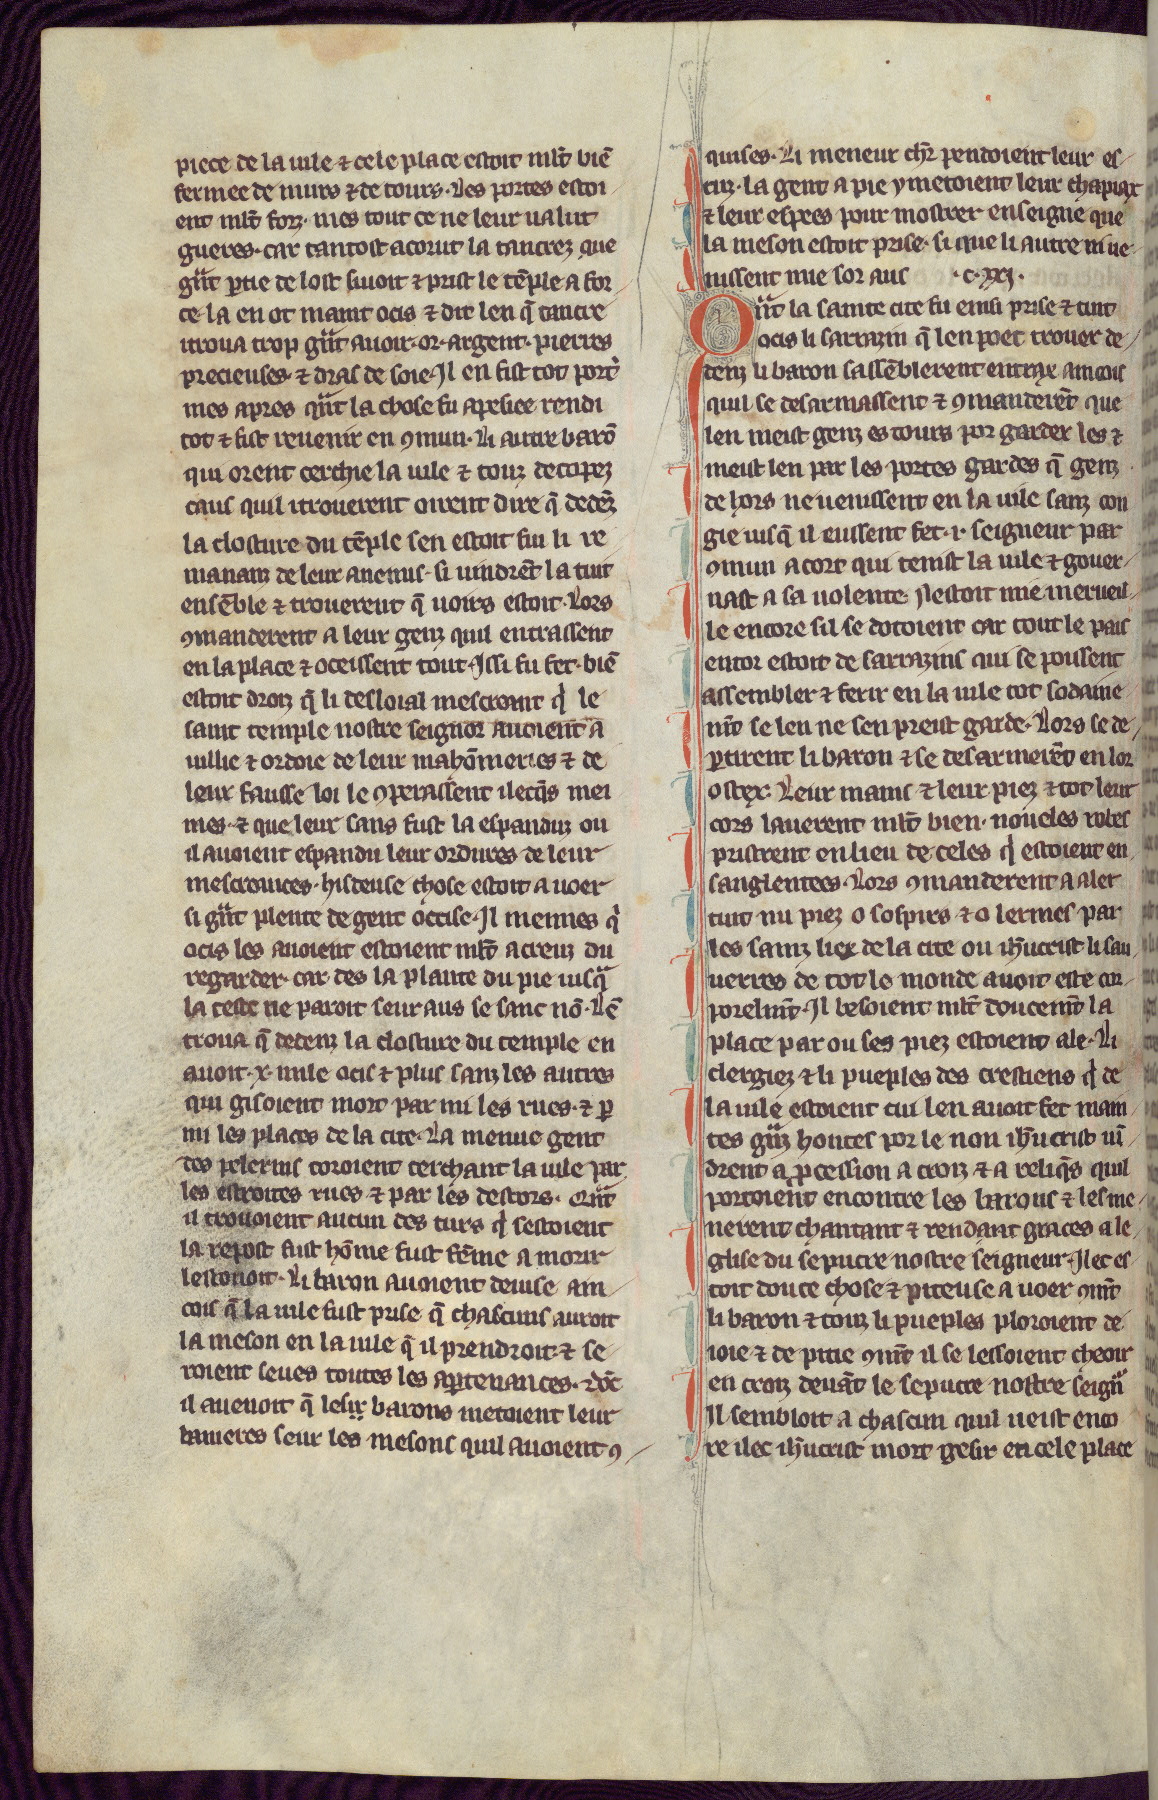 piece de la uile ⁊ cele place estoit ml̃t biē
fermee de murs ⁊ de tours. Les portes estoi-
ent ml̃t forz. mes tout ce ne leur ualut
gueres. car tantost acorut la tancrez que
gᵃ̃t ꝑtie de lost suioit ⁊ prist le tēple a for-
ce. la en ot maint ocis ⁊ dit len q̃ tancre
itroua trop gᵃ̃t auoir. or. argent. pierres
precieuses. ⁊ dras de soie. Il en fist tot port̾
mes apres qᵃ̃t la chose fu apesiee rendi
tot ⁊ fist reuenir en ꝯmun. Li autre barō
qui orent cerchie la uile ⁊ touz decopez
caus quil itrouerent oirent dire q̃ dedēz
la closture du tēple sen estoit fui li re
manant de leur anemis. si uindrēt la tuit
ensēble ⁊ trouerent q̃ uoirs estoit. Lors
ꝯmanderent a leur genz quil entrassent
en la place ⁊ oceissent tout. Issi fu fet. biē
estoit droiz q̃ li desloial mescreant qͥ le
saint temple nostre seignor auoient a
uillie ⁊ ordoie de leur mahōmeries ⁊ de
leur fausse loi le ꝯperassent ilecq̃s mei
mes. ⁊ que leur sans fust la espanduz ou
il auoient espandu leur ordures de leur
mescreances. hisdeuse chose estoit a uoer
si gᵃ̃t plente de gent occise. Il meimes qͥ
ocis les auoient estoient ml̃t acreuz du
regarder. car des la plante du pie iusqᵃ̃
la teste ne paroit seur aus se sanc nō. Lē
troua q̃ dedenz la closture du temple en
auoit .x. mile ocis ⁊ plus sanz les autres
qui gisoient mort par mi les rues. ⁊ ꝑ
mi les places de la cite. La menue gent
des pelerins coroient cerchant la uile par
les estroites rues ⁊ par les destors. Qᵃ̃t
il trouoient aucun des turs qͥ sestoient
la repost fust hōme fust fēme a morir
lestouoit. Li baron auoient deuise ain-
cois q̃ la uile fust prise q̃ chascuns auroit
la meson en la uile q̃ il prendroit. ⁊ se-
roient seues toutes les aꝑtenances. dōc
il auenoit q̃ les barons metoient leur
banieres seur les mesons quil auoient ꝯ-
quises. Li meneur chr̃ pendoient leur es-
cuz. la gent a pie ymetoient leur chapiax
⁊ leur espees pour mostrer enseigne que
la meson estoit prise. si que li autre ni ue-
nissent mie sor aus .c. xxj.
Qᵃ̃t la sainte cite fu einsi prise ⁊ tuit
ocis li sarrazin q̃ len poet trouer de-
denz li baron sassēblerent entrax aincois
quil se desarmassent ⁊ ꝯmanderēt que
len meist genz es tours por garder les ⁊
meist len par les portes gardes q̃ genz
de hors ne uenissent en la uile sanz con
gie iusq̃ il eussent fet .i. seigneur par
ꝯmun acort qui tenist la uile ⁊ gouer-
nast a sa uolente. Nestoit mie merueil-
le encore sil se dotoient car tout le pais
entor estoit de sarrazins qui se poussent
assembler ⁊ ferir en la uile tot sodaine-
mt̃ se len ne sen preist garde. Lors se de-
ꝑtirent li baron ⁊ se desarmerēt en lor
ostex. Leur mains ⁊ leur piez ⁊ tot leur
cors lauerent ml̃t bien. noueles robes
pristrent en lieu de celes qͥ estoient en
sanglentees. Lors ꝯmanderent a aler
tuit nu piez o sospirs ⁊ o lermes par
les sainz liex de la cite ou ih̃ucrist li sau-
uerres de tot le monde auoit este cor-
porelmt̃. Il besoient ml̃t doucemt̃ la
place par ou ses piez estoient ale. Li
clergiez ⁊ li pueples des crestiens qͥ de
la uile estoient cui len auoit fet main
tes gᵃ̃z hontes por le non ih̃ucrist ui-
drent a ꝓcession a croiz ⁊ a reliq̃s quil
portoient encontre les barons ⁊ les me-
nerent chantant ⁊ rendant graces a le-
glise du sepucre nostre seigneur. Ilec es-
toit douce chose ⁊ piteuse a uoer ꝯmt̃
li baron ⁊ touz li pueples ploroient de
ioie ⁊ de pitie ꝯmt̃ il se lessoient cheoir
en croiz deuāt le sepucre nostre seign̾
Il sembloit a chascun quil ueist enco
re ilec ih̃ucrist mort gesir en cele place